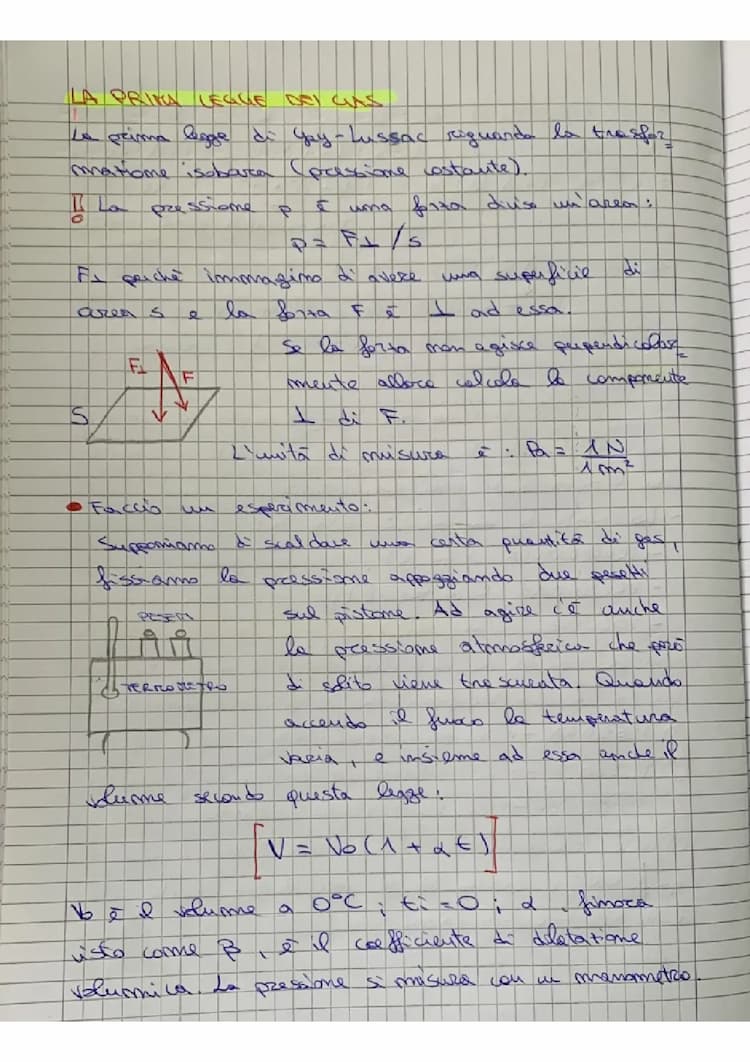 LA PRIMA LEGGE DEI GAS
La prima legge di Gay-Lussac riguarda la trasfor
mazione isobara (pressione costante).
!! La pressione p è una forza diviso un'area:
p = F⊥ /S
F⊥ perché immagino di avere una superficie di
area S e la forza F è ⊥ ad essa.
Se la forza non agisce perpendicolar
mente allora calcola la componente
⊥ di F.
F⊥ F
S
L'unità di misura è : Pa = 1N / 1m²
• Faccio un esperimento:
Supponiamo di scaldare una certa quantità di gas,
fissiamo la pressione appoggiando due pesetti
sul pistone. Ad agire c'è anche
la pressione atmosferica che però
di solito viene trascurata. Quando
accendo il fuoco la temperatura
varia, e insieme ad essa anche il
PESETTI
TERMOMETRO
volume secondo questa legge:
[V = V0 (1 + αt)]
V0 è il volume a 0°C ; ti = 0 ; α, finora
visto come β, è il coefficiente di dilatazione
volumica. La pressione si misura con un manometro.